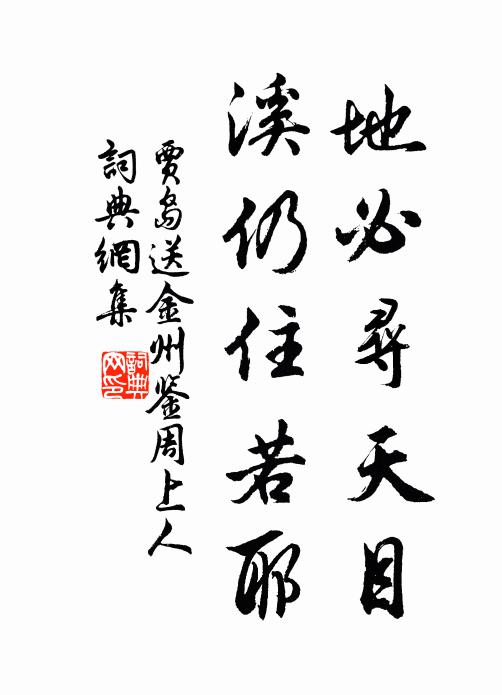 地必尋天目
溪仍住若耶
賈島送金州鉴周上人
詞典網集
詞典网印